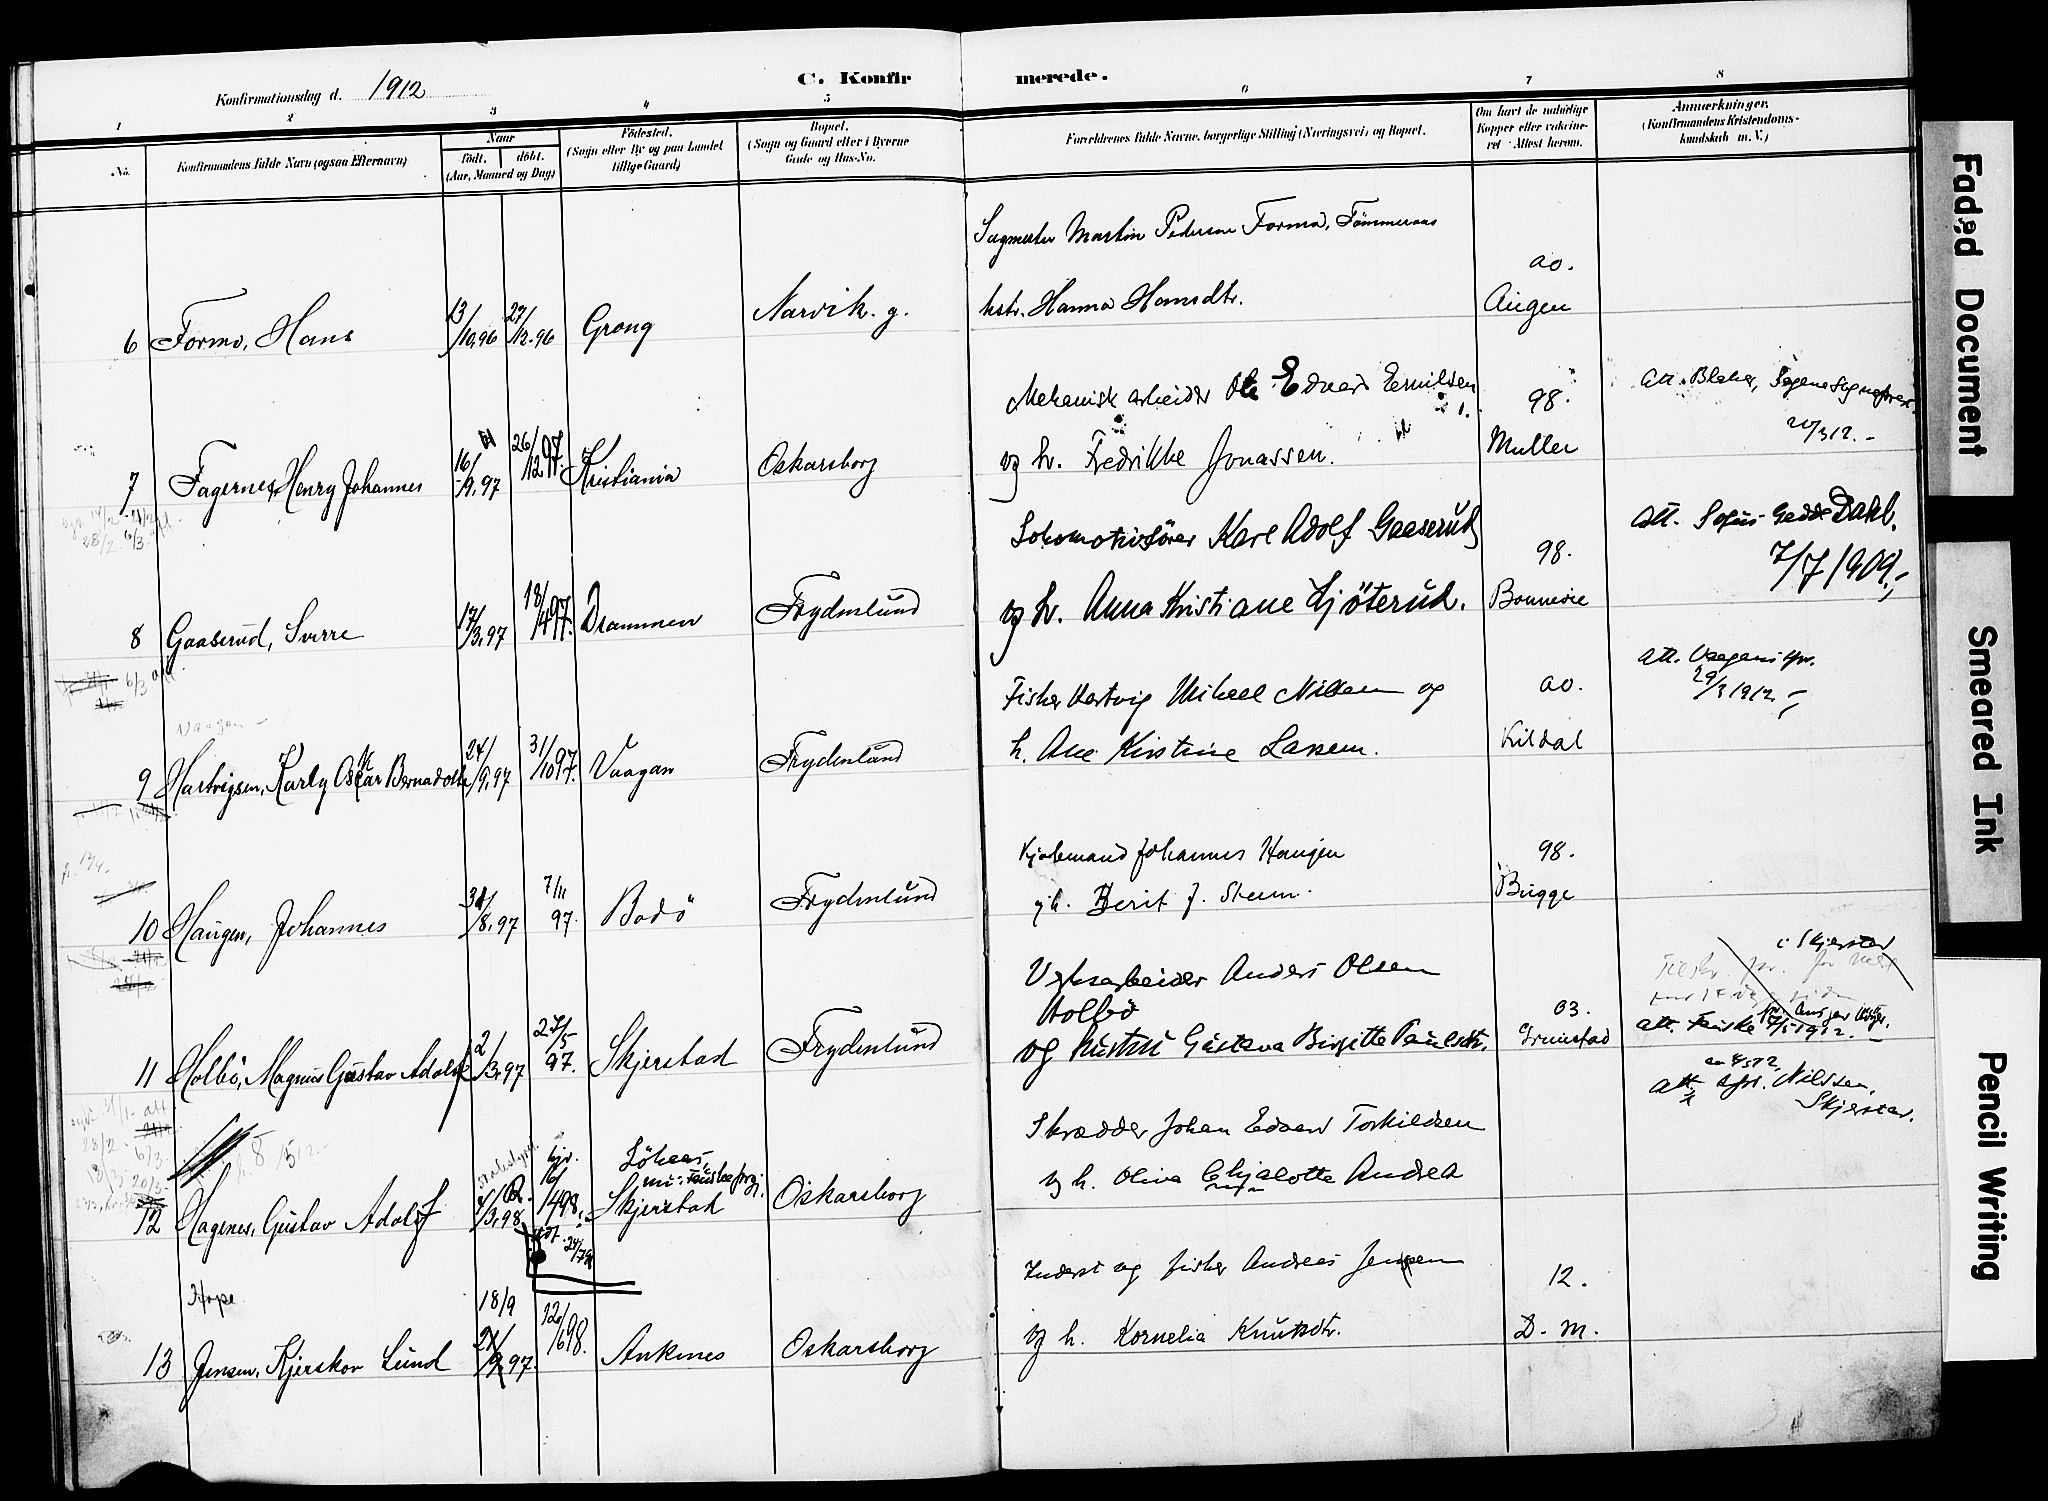 C. Konfirmerede.
Konfirmationsdag d. 1912
1 2 3 4 5 6 7 8
No.
Konfirmandens fulde Navn (ogsaa Efternavn)
Naar
født. døbt.
(Aar, Maaned og Dag)
Fødested.
(Sogn eller By og paa Landet
tillige Gaard)
Bopæl.
(Sogn og Gaard eller i Byerne
Gade og Hus-No.
Forældrenes fulde Navne, borgerlige Stilling (Næringsvei) og Bopæl.
Om havt de naturlige
Kopper eller vakcine-
ret Attest herom.
Anmærkninger.
(Konfirmandens Kristendoms-
kundskab m. V.)
Sagmester Martin Pedersen Formo, Tømmeraas
ao.
6 Formo, Hans 23/10.96 27/12.96 Grong Narvik. g. hstr. Hanna Hansdtr. Augen
Mekanisk arbeider Ole Edvard Emilsen 98. Att. Blaker,
20/3 12. -
7 Fagernes, Henry Johannes 16/9.97 26/12.97. Kristiania Oskarsborg og h. Fredrikke Jonassen. Muller
Lokomotivfører Karl Adolf Gaaserud 98. Att. Sofus Gedde Dahl.
7/7 1909.
8 Gaaserud, Sverre 17/3.97 18/4 97. Drammen Frydenlund og h. Anna Kristiane Ljøterud. Bonnevie
6/3 att.
Fisker Hartvig Mikael Nilsen og ao. Att. Vaagan spr.
29/3 1912.
Vaagan -
9 Hartvigsen, Karly Oskar Bernadotte 24/9.97 31/10 97. Vaagan Frydenlund h. Ane Kirstine Larsen. Kildal
Kjølemand Johannes Haugen 98.
10 Haugen, Johannes 31/8.97 7/11 97. Bodø Frydenlund g. h. Berit J. Steen. Bugge
i Skjerstad
Verksarbeider Anders Olsen
Holbø 03.
11 Holbø, Magnus Gustav Adolf 2/3.97 27/5 97. Skjerstad Frydenlund og Kirstine Gustava Birgitte Paulsdtr. Grimstad Att. Fauske 7/5 1912. -
Att. spr. Nilssen,
Skjerstad.
Skrædder Johan Edvard Torkildsen
8/5 12. -
12 Hagenes, Gustav Adolf 7/3.98 16/4 98. Skjerstad Oskarsborg og h. Oliva Chjalotte Andrea
Inderst og fisker Andreas Jensen 12.
Hope
18/9
13 Jensen, Kjerskov Lund 21/9.97. 12/6 98. Ankenes Oskarsborg og h. Kornelia Knutsdtr. D. M.
Faded Document
Smeared Ink
Pencil Writing